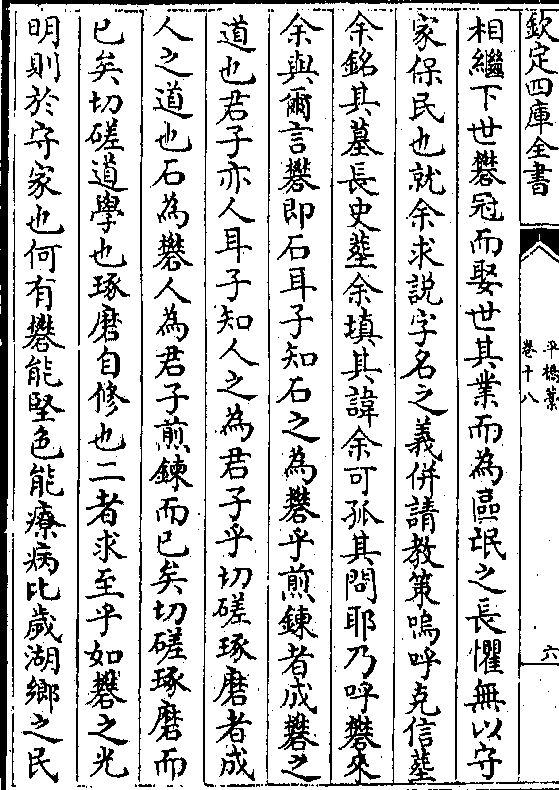 欽定四庫全書
平橋藁
卷十八
六
相繼下世礬冠而娶世其業而為區氓之長懼無以守
家保民也就余求説字名之義併請教策嗚呼克信塟
余銘其墓長史塟余填其諱余可孤其問耶乃呼礬來
余與爾言礬即石耳子知石之為礬乎煎鍊者成礬之
道也君子亦人耳子知人之為君子乎切磋琢磨者成
人之道也石為礬人為君子煎鍊而已矣切磋琢磨而
已矣切磋道學也琢磨自修也二者求至乎如礬之光
明則於守家也何有礬能堅色能療病比歲湖鄉之民